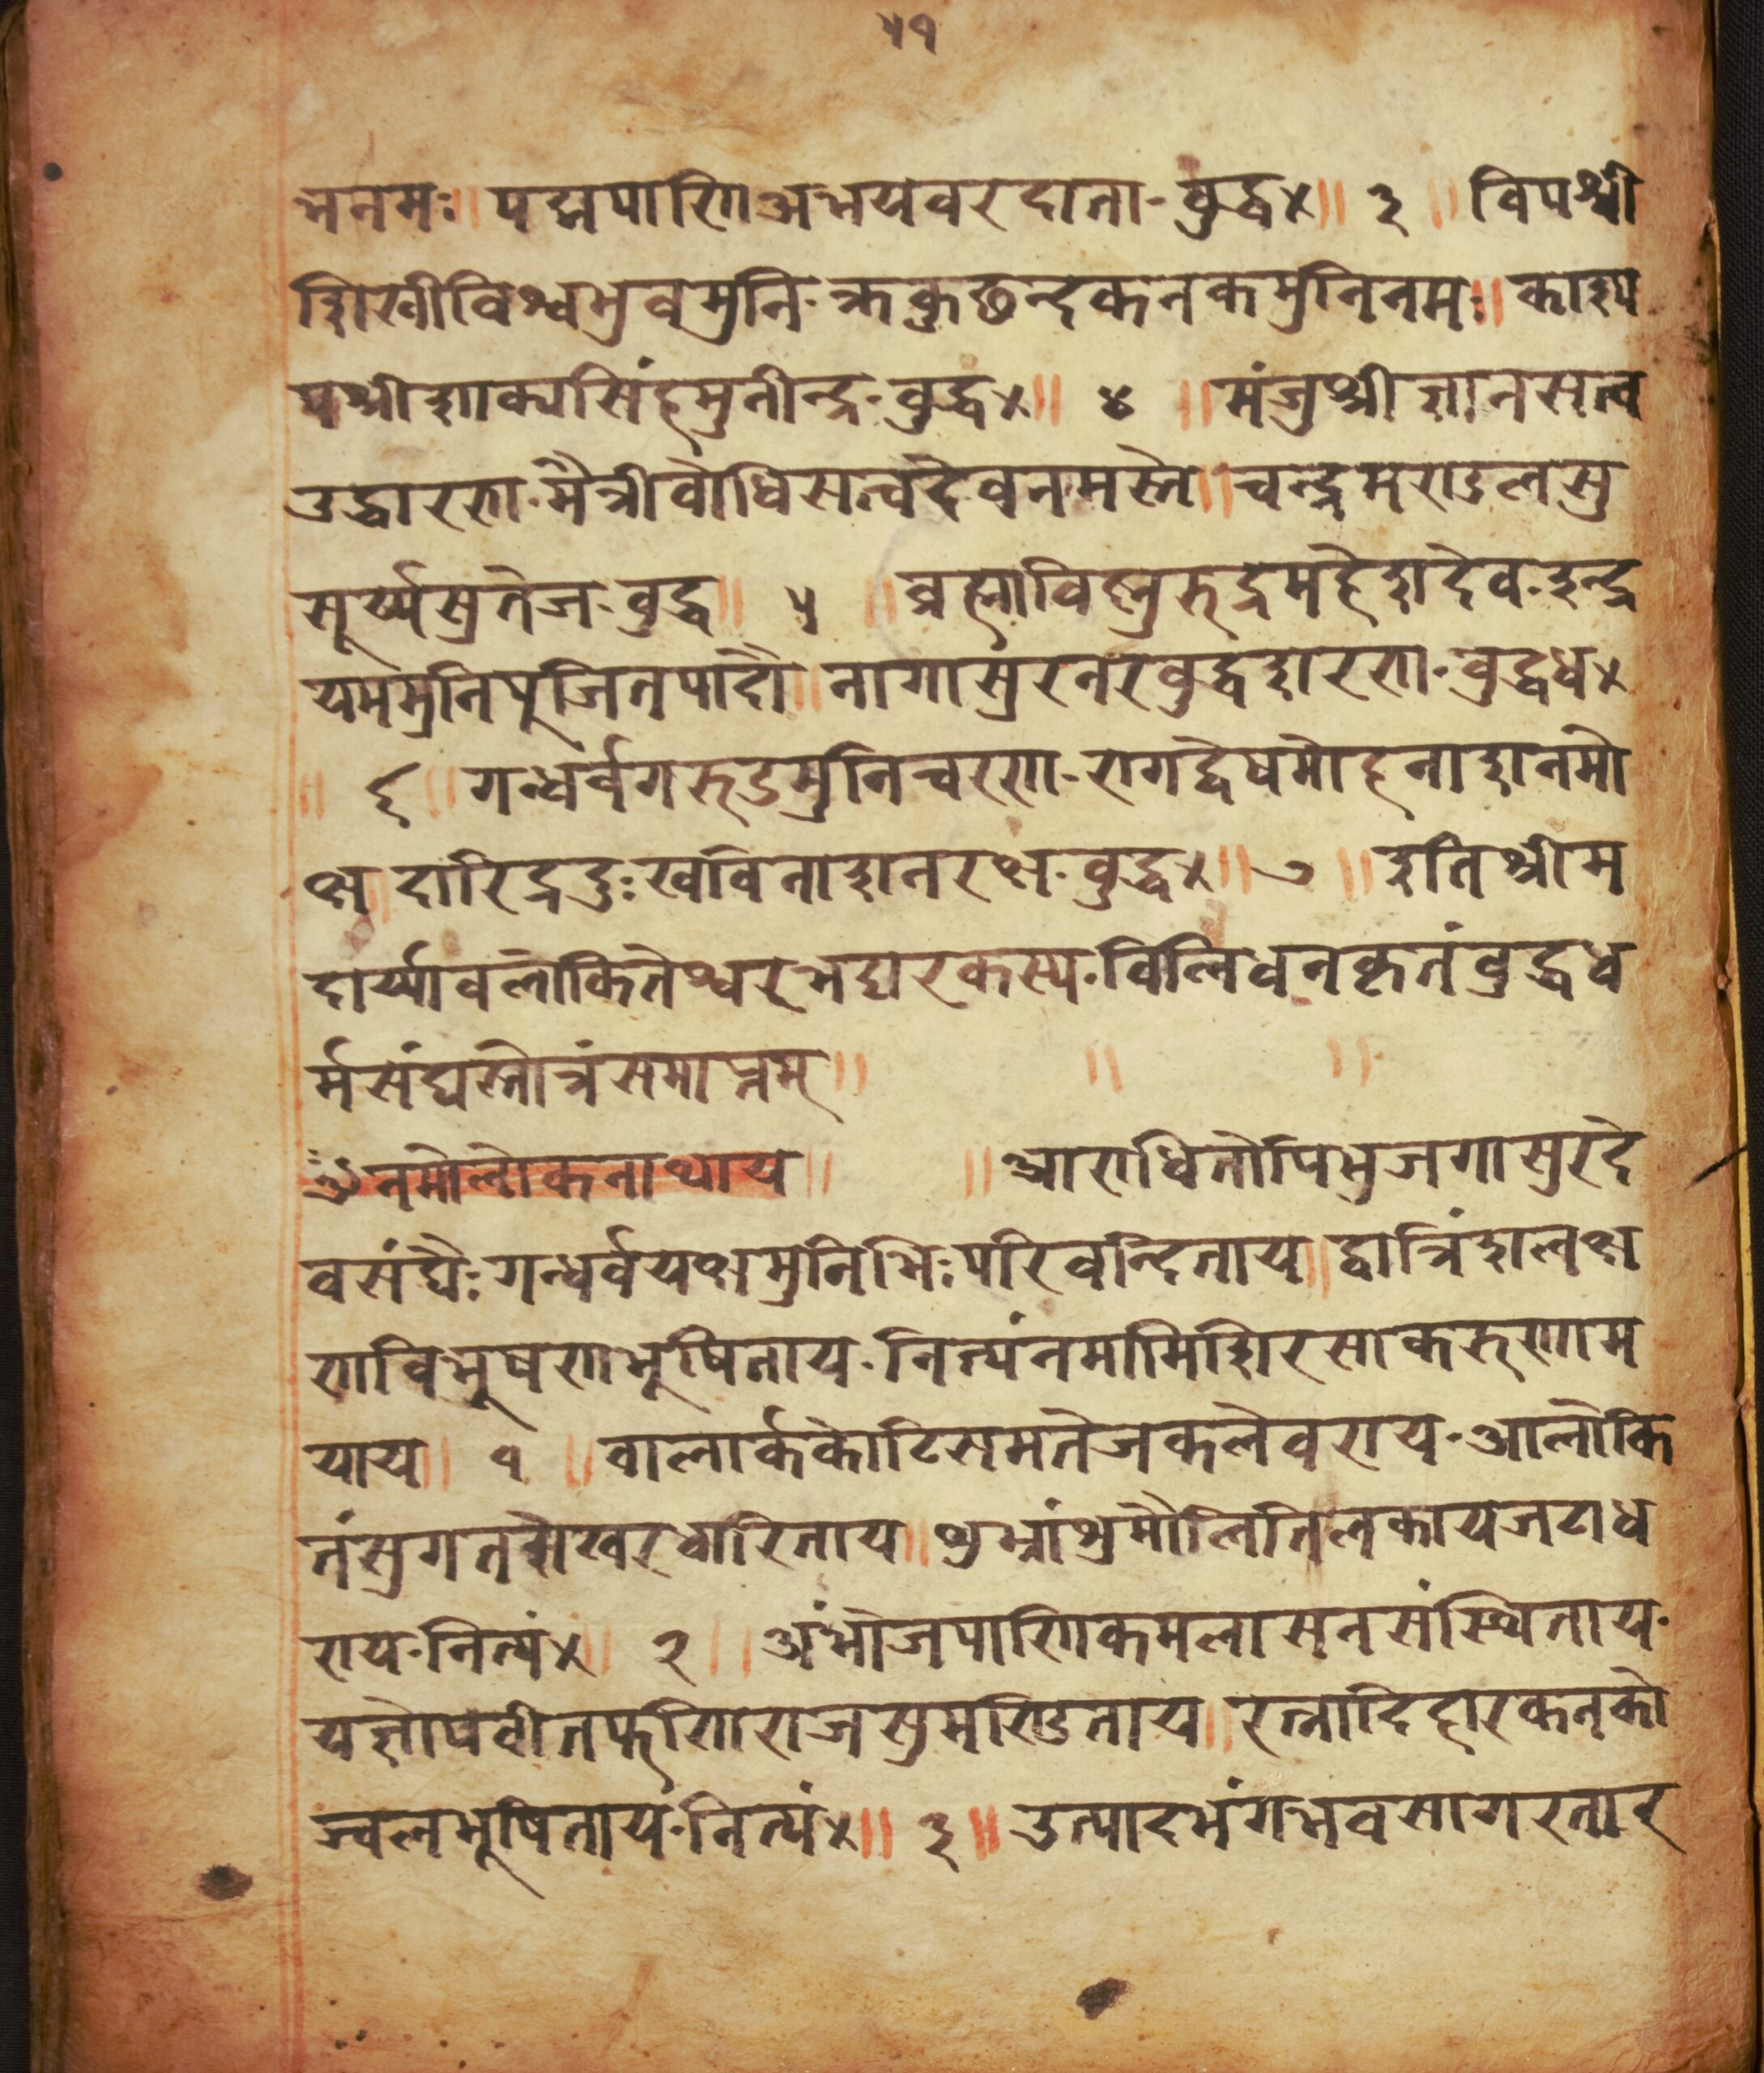 ५१
भनमः॥ पद्मपाणिअभयवरदाता-बुद्ध×॥ ३ ॥ विपश्वी
शिखीविश्वभुवमुनि-क्रकुछन्दकनकमुनिनमः॥ काश्य
पश्रीशाक्यसिंहमुनीन्द्र-बुद्ध×॥ ४ ॥मंजुश्रीज्ञानसत्व
उद्धारण-मैत्रीवोधिसत्वदेवनमस्ते॥ चन्द्रमण्डलसु
सूर्य्यसुतेज-वुद्ध॥ ५ ॥ व्रह्माविष्णुरुद्रमहेशदेव-इन्द्र
यममुनिपुजितपादौ॥ नागासुरनरवुद्धशरण-वुद्धध×
॥ ६ ॥ गन्धर्वगरुडमुनिचरण-रागद्वेषमोहनाशनमो
क्ष॥ दारिद्रदुःखविनाशनरक्ष-वुद्ध×॥ ७ ॥ इतिश्रीम
दार्य्यावलोकितेश्वरभट्टारकस्य-विलिवनकृतंवुद्धध
र्मसंघस्तोत्रंसमाप्तम्॥ ॥ ॥
ॐनमोलोकनाथाय॥ ॥ आराधितोपिभुजगासुरदे
वसंघैः गन्धर्वयक्षमुनिभिःपरिवन्दिताय॥ द्वात्रिंशलक्ष
णविभुषणभूषिताय-नित्यंनमामिशिरसाकरुणाम
याय॥ १ ॥ वालार्ककोटिसमतेजकलेवराय-आलोकि
तंसुगतसेखरधारिताय॥ शुभ्रांशुमौलितिलकायजटाध
राय-नित्यं×॥ २ ॥ अंभोजपाणिकमलासनसंस्थिताय-
यज्ञोपवीतफणिराजसुमण्डिताय॥ रत्नादिहारकनको
ज्वलभूषिताय-नित्यं×॥ ३ ॥ उत्पादभंगभवसागरतार